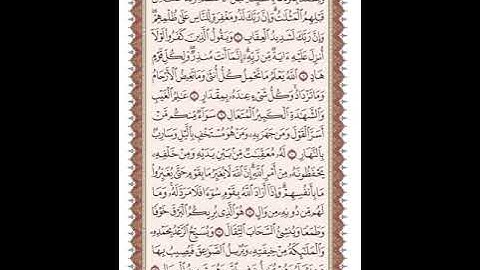 قَبْلِهِمُ ٱلْمَثُلَـٰتُ وَإِنَّ رَبَّكَ لَذُو مَغْفِرَةٍ لِّلنَّاسِ عَلَىٰ ظُلْمِهِمْ
وَإِنَّ رَبَّكَ لَشَدِيدُ ٱلْعِقَابِ ۝ وَيَقُولُ ٱلَّذِينَ كَفَرُوا۟ لَوْلَآ
أُنزِلَ عَلَيْهِ ءَايَةٌ مِّن رَّبِّهِۦٓ إِنَّمَآ أَنتَ مُنذِرٌ وَلِكُلِّ قَوْمٍ
هَادٍ ۝ ٱللَّهُ يَعْلَمُ مَا تَحْمِلُ كُلُّ أُنثَىٰ وَمَا تَغِيضُ ٱلْأَرْحَامُ
وَمَا تَزْدَادُ وَكُلُّ شَىْءٍ عِندَهُۥ بِمِقْدَارٍ ۝ عَـٰلِمُ ٱلْغَيْبِ
وَٱلشَّهَـٰدَةِ ٱلْكَبِيرُ ٱلْمُتَعَالِ ۝ سَوَآءٌ مِّنكُم مَّنْ
أَسَرَّ ٱلْقَوْلَ وَمَن جَهَرَ بِهِۦ وَمَنْ هُوَ مُسْتَخْفٍۭ بِٱلَّيْلِ وَسَارِبٌۢ
بِٱلنَّهَارِ ۝ لَهُۥ مُعَقِّبَـٰتٌ مِّنۢ بَيْنِ يَدَيْهِ وَمِنْ خَلْفِهِۦ
يَحْفَظُونَهُۥ مِنْ أَمْرِ ٱللَّهِ إِنَّ ٱللَّهَ لَا يُغَيِّرُ مَا بِقَوْمٍ حَتَّىٰ يُغَيِّرُوا۟
مَا بِأَنفُسِهِمْ وَإِذَآ أَرَادَ ٱللَّهُ بِقَوْمٍ سُوٓءًا فَلَا مَرَدَّ لَهُۥ وَمَا
لَهُم مِّن دُونِهِۦ مِن وَالٍ ۝ هُوَ ٱلَّذِى يُرِيكُمُ ٱلْبَرْقَ خَوْفًا
وَطَمَعًا وَيُنشِئُ ٱلسَّحَابَ ٱلثِّقَالَ ۝ وَيُسَبِّحُ ٱلرَّعْدُ بِحَمْدِهِۦ
وَٱلْمَلَـٰٓئِكَةُ مِنْ خِيفَتِهِۦ وَيُرْسِلُ ٱلصَّوَٰعِقَ فَيُصِيبُ بِهَا